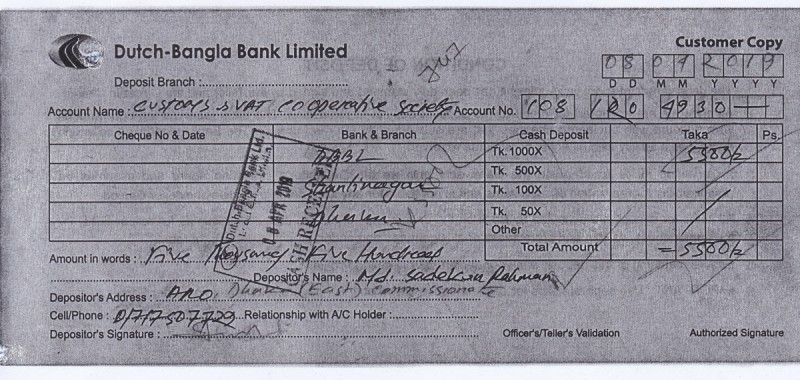 Dutch-Bangla Bank Limited
Customer Copy
08 04 2019
D D M M Y Y Y Y
Deposit Branch :
Account Name : Customs & VAT Co operative Society Account No. 108 120 4930
Cheque No & Date Bank & Branch Cash Deposit Taka Ps.
DBBL Tk. 1000X 5500/=
Tk. 500X
Shantinagar Tk. 100X
Dhaka Tk. 50X
Other
Dutch-Bangla Bank Ltd.
08 APR 2019
CASH RECEIVED
Total Amount = 5500/=
Amount in words : Five Thousand Five Hundred
Depositor's Name : Md. Sadekur Rahman
Depositor's Address : ARO, Dhaka (East) Commissionate
Cell/Phone : 01717507729 Relationship with A/C Holder :
Depositor's Signature : Officer's/Teller's Validation Authorized Signature